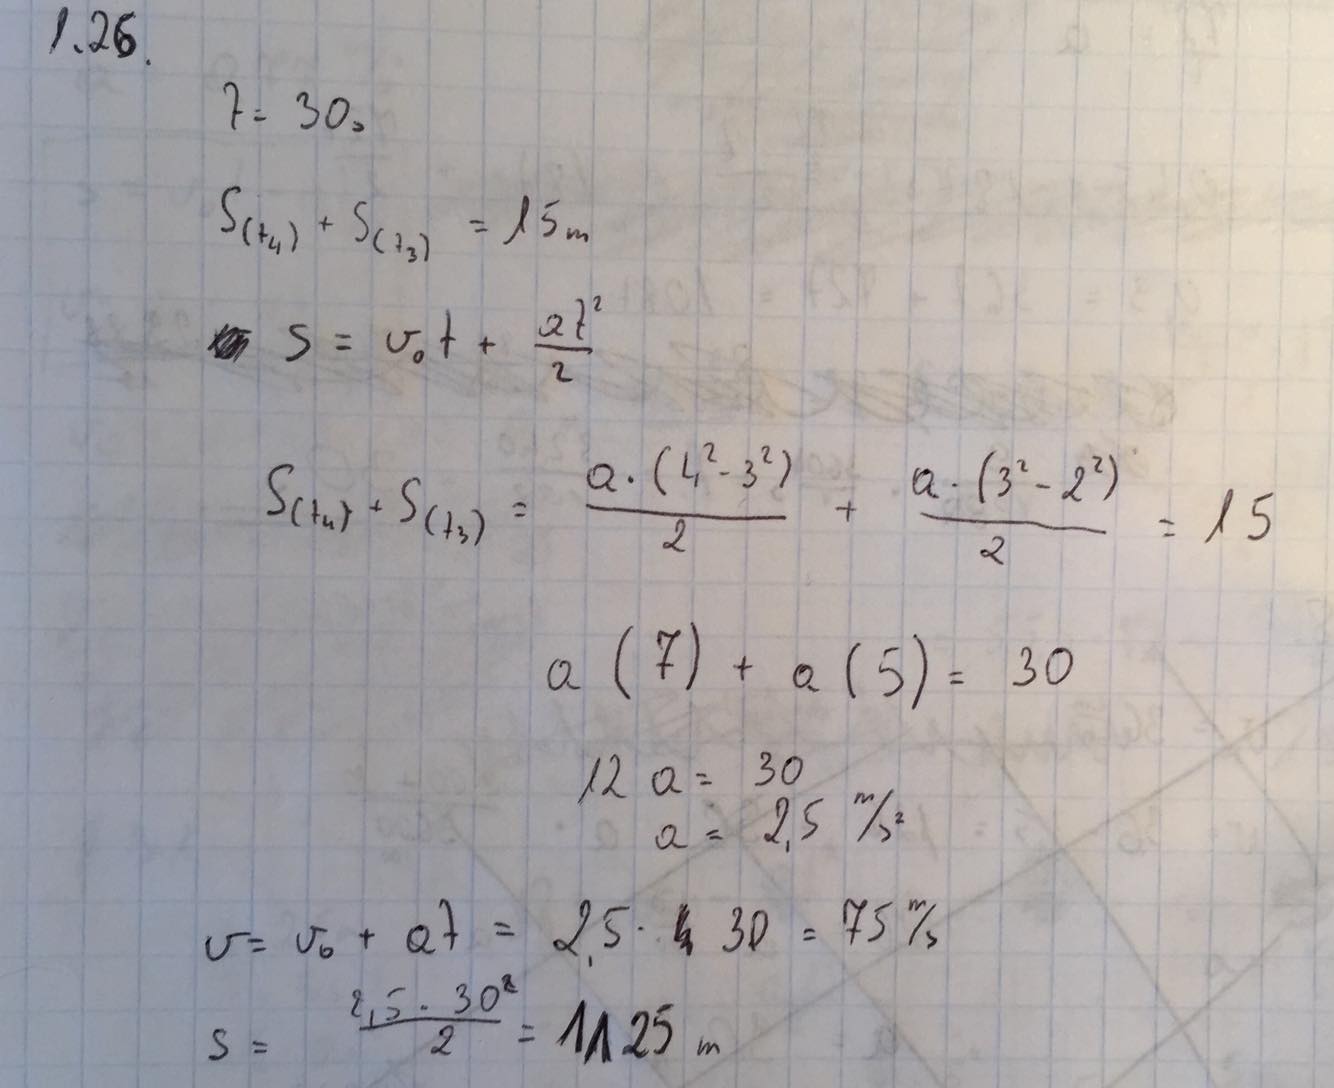 1.26.
t = 30s
S(t₄) + S(t₃) = 15 m
s = v₀t + at²/2
S(t₄) + S(t₃) = a·(4²-3²)/2 + a·(3²-2²)/2 = 15
a(7) + a(5) = 30
12 a = 30
a = 2,5 m/s²
v = v₀ + at = 2,5 · 30 = 75 m/s
s = 2,5 · 30²/2 = 1125 m